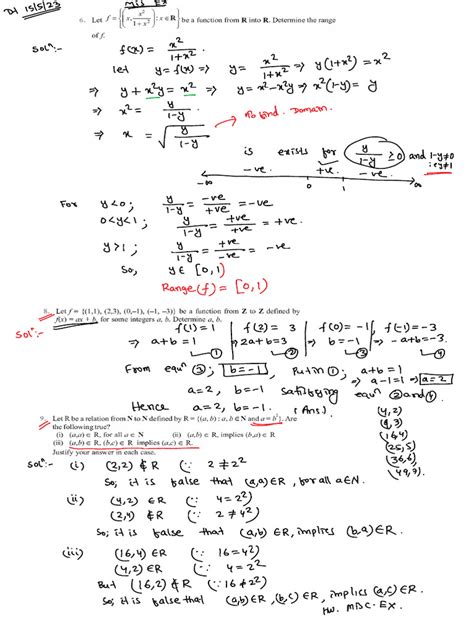 Dt 15/5/23
Mis Ex
6. Let f = {(x, x²/1+x²) : x ∈ R} be a function from R into R. Determine the range
of f.
Solⁿ:- f(x) = x²/1+x²
let y = f(x) ⇒ y = x²/1+x² ⇒ y(1+x²) = x²
⇒ y + x²y = x² ⇒ y = x²-x²y ⇒ x²(1-y) = y
⇒ x² = y/1-y
⇒ x = √(y/1-y) → To find Domain.
is exists for y/1-y ≥ 0 and 1-y≠0
∴ y≠1
-ve +ve -ve
-∞ 0 1 ∞
For y<0 ; y/1-y = -ve/+ve = -ve
0<y<1 ; y/1-y = +ve/+ve = +ve.
y>1 ; y/1-y = +ve/-ve = -ve
So, y ∈ [0,1)
Range(f) = [0,1)
8. Let f = {(1,1), (2,3), (0,-1), (-1, -3)} be a function from Z to Z defined by
f(x) = ax + b, for some integers a, b. Determine a, b.
Solⁿ:- f(1) = 1 | f(2) = 3 | f(0) = -1 | f(-1) = -3
⇒ a+b = 1 | ⇒ 2a+b = 3 | ⇒ b = -1 | ⇒ -a+b = -3
① ② ③ ④
From eqⁿ ③; b=-1, Put in ①; a+b = 1
⇒ a-1=1 ⇒ a=2
a=2, b=-1 satisfying eqⁿ ② and ④.
Hence a=2, b=-1. (Ans)
9. Let R be a relation from N to N defined by R = {(a, b) : a, b ∈ N and a = b²}. Are
the following true?
(i) (a,a) ∈ R, for all a ∈ N (ii) (a,b) ∈ R, implies (b,a) ∈ R
(iii) (a,b) ∈ R, (b,c) ∈ R implies (a,c) ∈ R.
Justify your answer in each case.
(4,2)
(9,3)
(16,4)
(25,5)
(36,6)
(49,7)
Solⁿ:- (i) (2,2) ∉ R (∵ 2 ≠ 2²)
So, it is false that (a,a) ∈ R, for all a ∈ N.
(ii) (4,2) ∈ R (∵ 4 = 2²)
(2,4) ∉ R (∵ 2 ≠ 4²)
So, it is false that (a,b) ∈ R, implies (b,a) ∈ R.
(iii) (16,4) ∈ R (∵ 16 = 4²)
(4,2) ∈ R (∵ 4 = 2²)
But (16,2) ∉ R (∵ 16 ≠ 2²)
So, it is false that (a,b) ∈ R, (b,c) ∈ R, implies (a,c) ∈ R.
HW. MISC. EX.